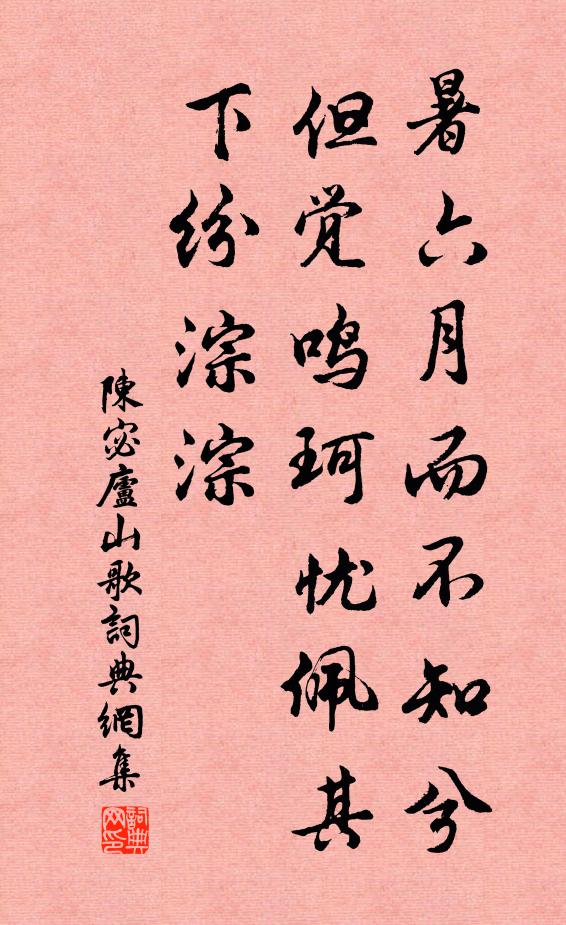 暑六月而不知兮
但觉鸣珂忧佩其
下纷淙淙
陳宓廬山歌詞典網集
詞典网印